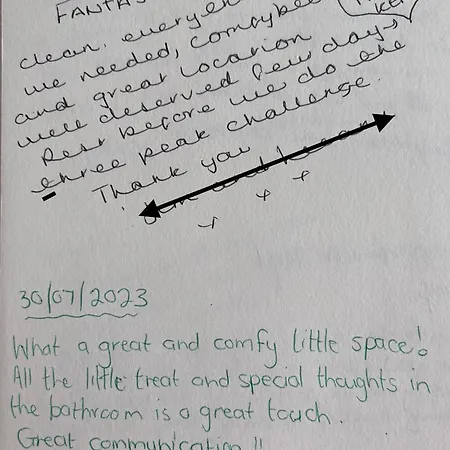 FANTAS
clean. everyth
we needed, comfy bed
and great location
well deserved few days
Rest before we do the
three peak challenge.
Thank you
x x x
30/07/2023
What a great and comfy little space!
All the little treat and special thoughts in
the bathroom is a great touch.
Great communication!!